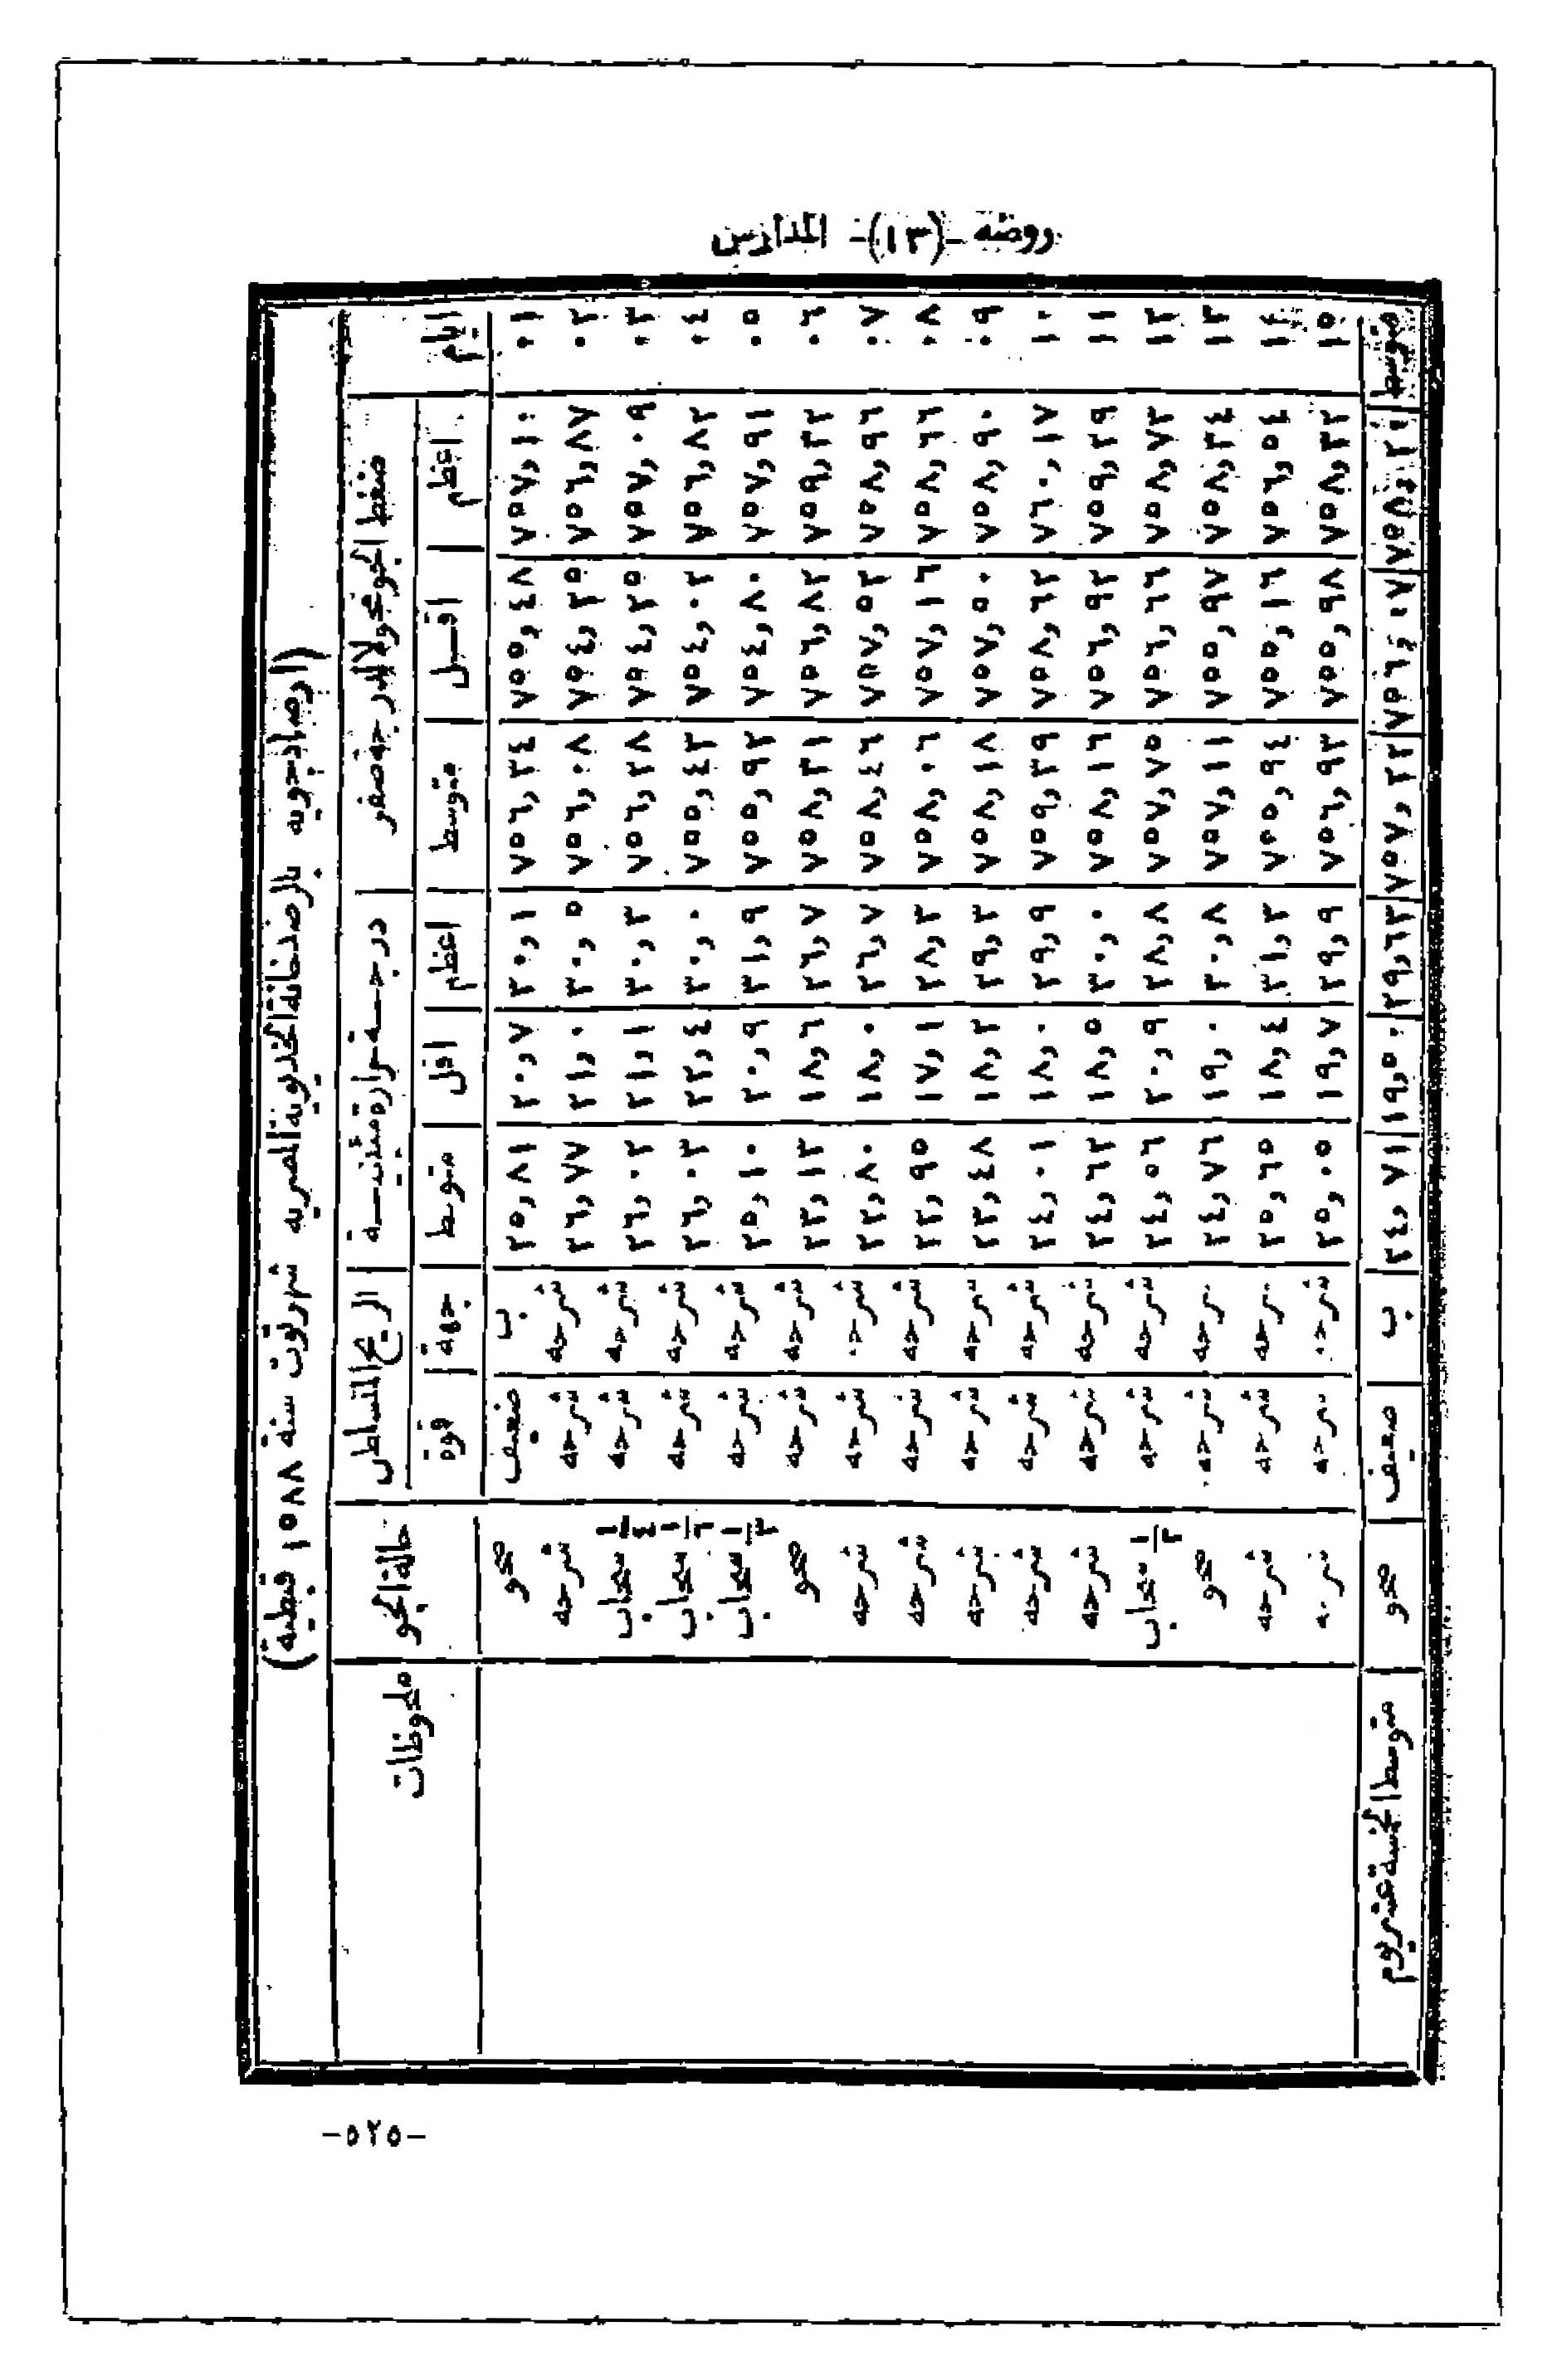 روضة -(١٣)- المدارس
(ارصاد جويه بالرصدخانة الخديوية المصريه شهر توت سنة ١٥٨٨ قبطية)
ايام | ضغط الجو محولا لدرجة صفر | درجة حرارة مئينية | الريح المتسلطن | حالة الجو | ملحوظات
اعظم | اقل | متوسط | اعظم | اقل | متوسط | جهة | قوة
٠١ | ٧٥٧,١٠ | ٧٥٥,٤٨ | ٧٥٦,٣٤ | ٣٠,١ | ٢٠,٧ | ٢٥,٨١ | ب | ضعيف | صحو
٠٢ | ٧٥٦,٨٧ | ٧٥٤,٣٥ | ٧٥٦,٠٨ | ٣٠,٥ | ٢١,٠ | ٢٦,٧٧ | شرحه | شرحه | شرحه
٠٣ | ٧٥٧,٠٩ | ٧٥٤,٢٥ | ٧٥٦,٢٨ | ٣٠,٣ | ٢١,١ | ٢٦,٠٢ | شرحه | شرحه | سحاب ١/٤
٠٤ | ٧٥٦,٨٢ | ٧٥٤,٠٢ | ٧٥٥,٤٣ | ٣٠,٠ | ٢٢,٤ | ٢٦,٠٣ | شرحه | شرحه | سحاب ١/٦
٠٥ | ٧٥٧,٩١ | ٧٥٤,٨٠ | ٧٥٥,٩٢ | ٣١,٩ | ٢٠,٩ | ٢٥,١٠ | شرحه | شرحه | سحاب ١/٣
٠٦ | ٧٥٩,٣٢ | ٧٥٦,٨٢ | ٧٥٨,٣١ | ٢٦,٧ | ١٨,٦ | ٢٣,١٣ | شرحه | شرحه | صحو
٠٧ | ٧٥٨,٩٦ | ٧٥٧,٥٣ | ٧٥٨,٤٦ | ٢٦,٧ | ١٨,٠ | ٢٢,٨٠ | شرحه | شرحه | شرحه
٠٨ | ٧٥٨,٦٦ | ٧٥٧,١٦ | ٧٥٨,٠٦ | ٢٨,٣ | ١٧,١ | ٢٢,٩٥ | شرحه | شرحه | شرحه
٠٩ | ٧٥٨,٩٠ | ٧٥٧,٥٠ | ٧٥٨,١٨ | ٢٩,٣ | ١٨,٢ | ٢٣,٤٨ | شرحه | شرحه | شرحه
١٠ | ٧٦٠,١٧ | ٧٥٨,٦٢ | ٧٥٩,٣٩ | ٢٩,٩ | ١٨,٠ | ٢٤,٠١ | شرحه | شرحه | شرحه
١١ | ٧٥٩,٢٩ | ٧٥٦,٩٢ | ٧٥٨,١٦ | ٣٠,٠ | ١٨,٥ | ٢٤,٦٢ | شرحه | شرحه | شرحه
١٢ | ٧٥٨,٧٣ | ٧٥٦,٦٦ | ٧٥٧,٧٥ | ٢٨,٨ | ٢٠,٩ | ٢٤,٥٦ | شرحه | شرحه | سحاب ١/٢
١٣ | ٧٥٨,٣٤ | ٧٥٥,٩٧ | ٧٥٧,١١ | ٣٠,٨ | ١٩,٠ | ٢٤,٧٦ | شرحه | شرحه | صحو
١٤ | ٧٥٦,٥٤ | ٧٥٥,١٦ | ٧٥٥,٩٤ | ٣١,٢ | ١٨,٤ | ٢٥,٦٥ | شرحه | شرحه | شرحه
١٥ | ٧٥٨,٣٢ | ٧٥٥,٩٨ | ٧٥٦,٩٣ | ٢٩,٩ | ١٩,٧ | ٢٥,٠٥ | شرحه | شرحه | شرحه
متوسط | ٧٥٦,٠٧ | ٧٥٧,٢٢ | ٢٩,٦٣ | ١٩,٥٠ | ٢٤,٧١ | ب | ضعيف | صحو | متوسط الخمسة عشر يوم
-٥٢٥-